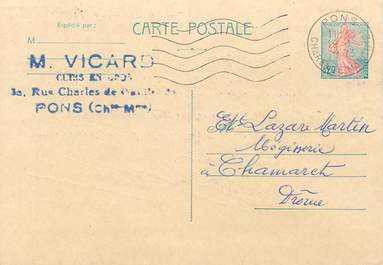 Expédié par :
CARTE POSTALE
M.
M. VICARD
CUIRS EN GROS
3a, Rue Charles de Gaulle
PONS (Chte Mme)
PONS
0,20
Ets Lazare Martin
Mégiserie
à Chamaret
Drôme